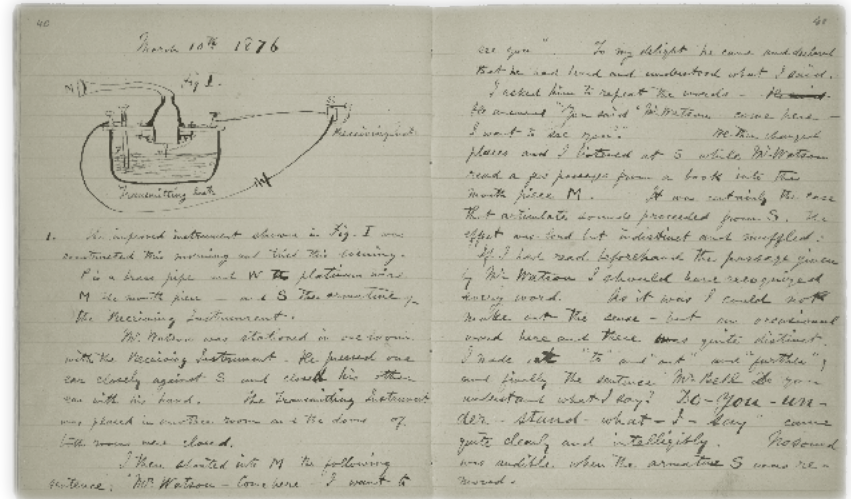 40
March 10th 1876
Fig I.
M
S
Receiving Inst.
P
W
Transmitting Inst.
1. The improved instrument shown in Fig. I was
constructed this morning and tried this evening.
P is a brass pipe and W the platinum wire
M the mouth piece — and S the armature of
the Receiving Instrument.
Mr. Watson was stationed in one room
with the Receiving Instrument. He pressed one
ear closely against S and closed his other
ear with his hand. The Transmitting Instrument
was placed in another room and the doors of
both rooms were closed.
I then shouted into M the following
sentence: "Mr. Watson — Come here — I want to
see you". To my delight he came and declared
that he had heard and understood what I said.
I asked him to repeat the words — He said
He answered "You said "Mr. Watson — come here —
I want to see you"." We then changed
places and I listened at S while Mr. Watson
read a few passages from a book into the
mouth piece M. It was certainly the case
that articulate sounds proceeded from S. The
effect was loud but indistinct and muffled.
If I had read beforehand the passage given
by Mr. Watson I should have recognized
every word. As it was I could not
make out the sense — but an occasional
word here and there was quite distinct.
I made out "to" and "out" and "further";
and finally the sentence "Mr. Bell Do you
understand what I say? Do-you-un-
der-stand-what-I-say" came
quite clearly and intelligibly. No sound
was audible when the armature S was re-
moved.